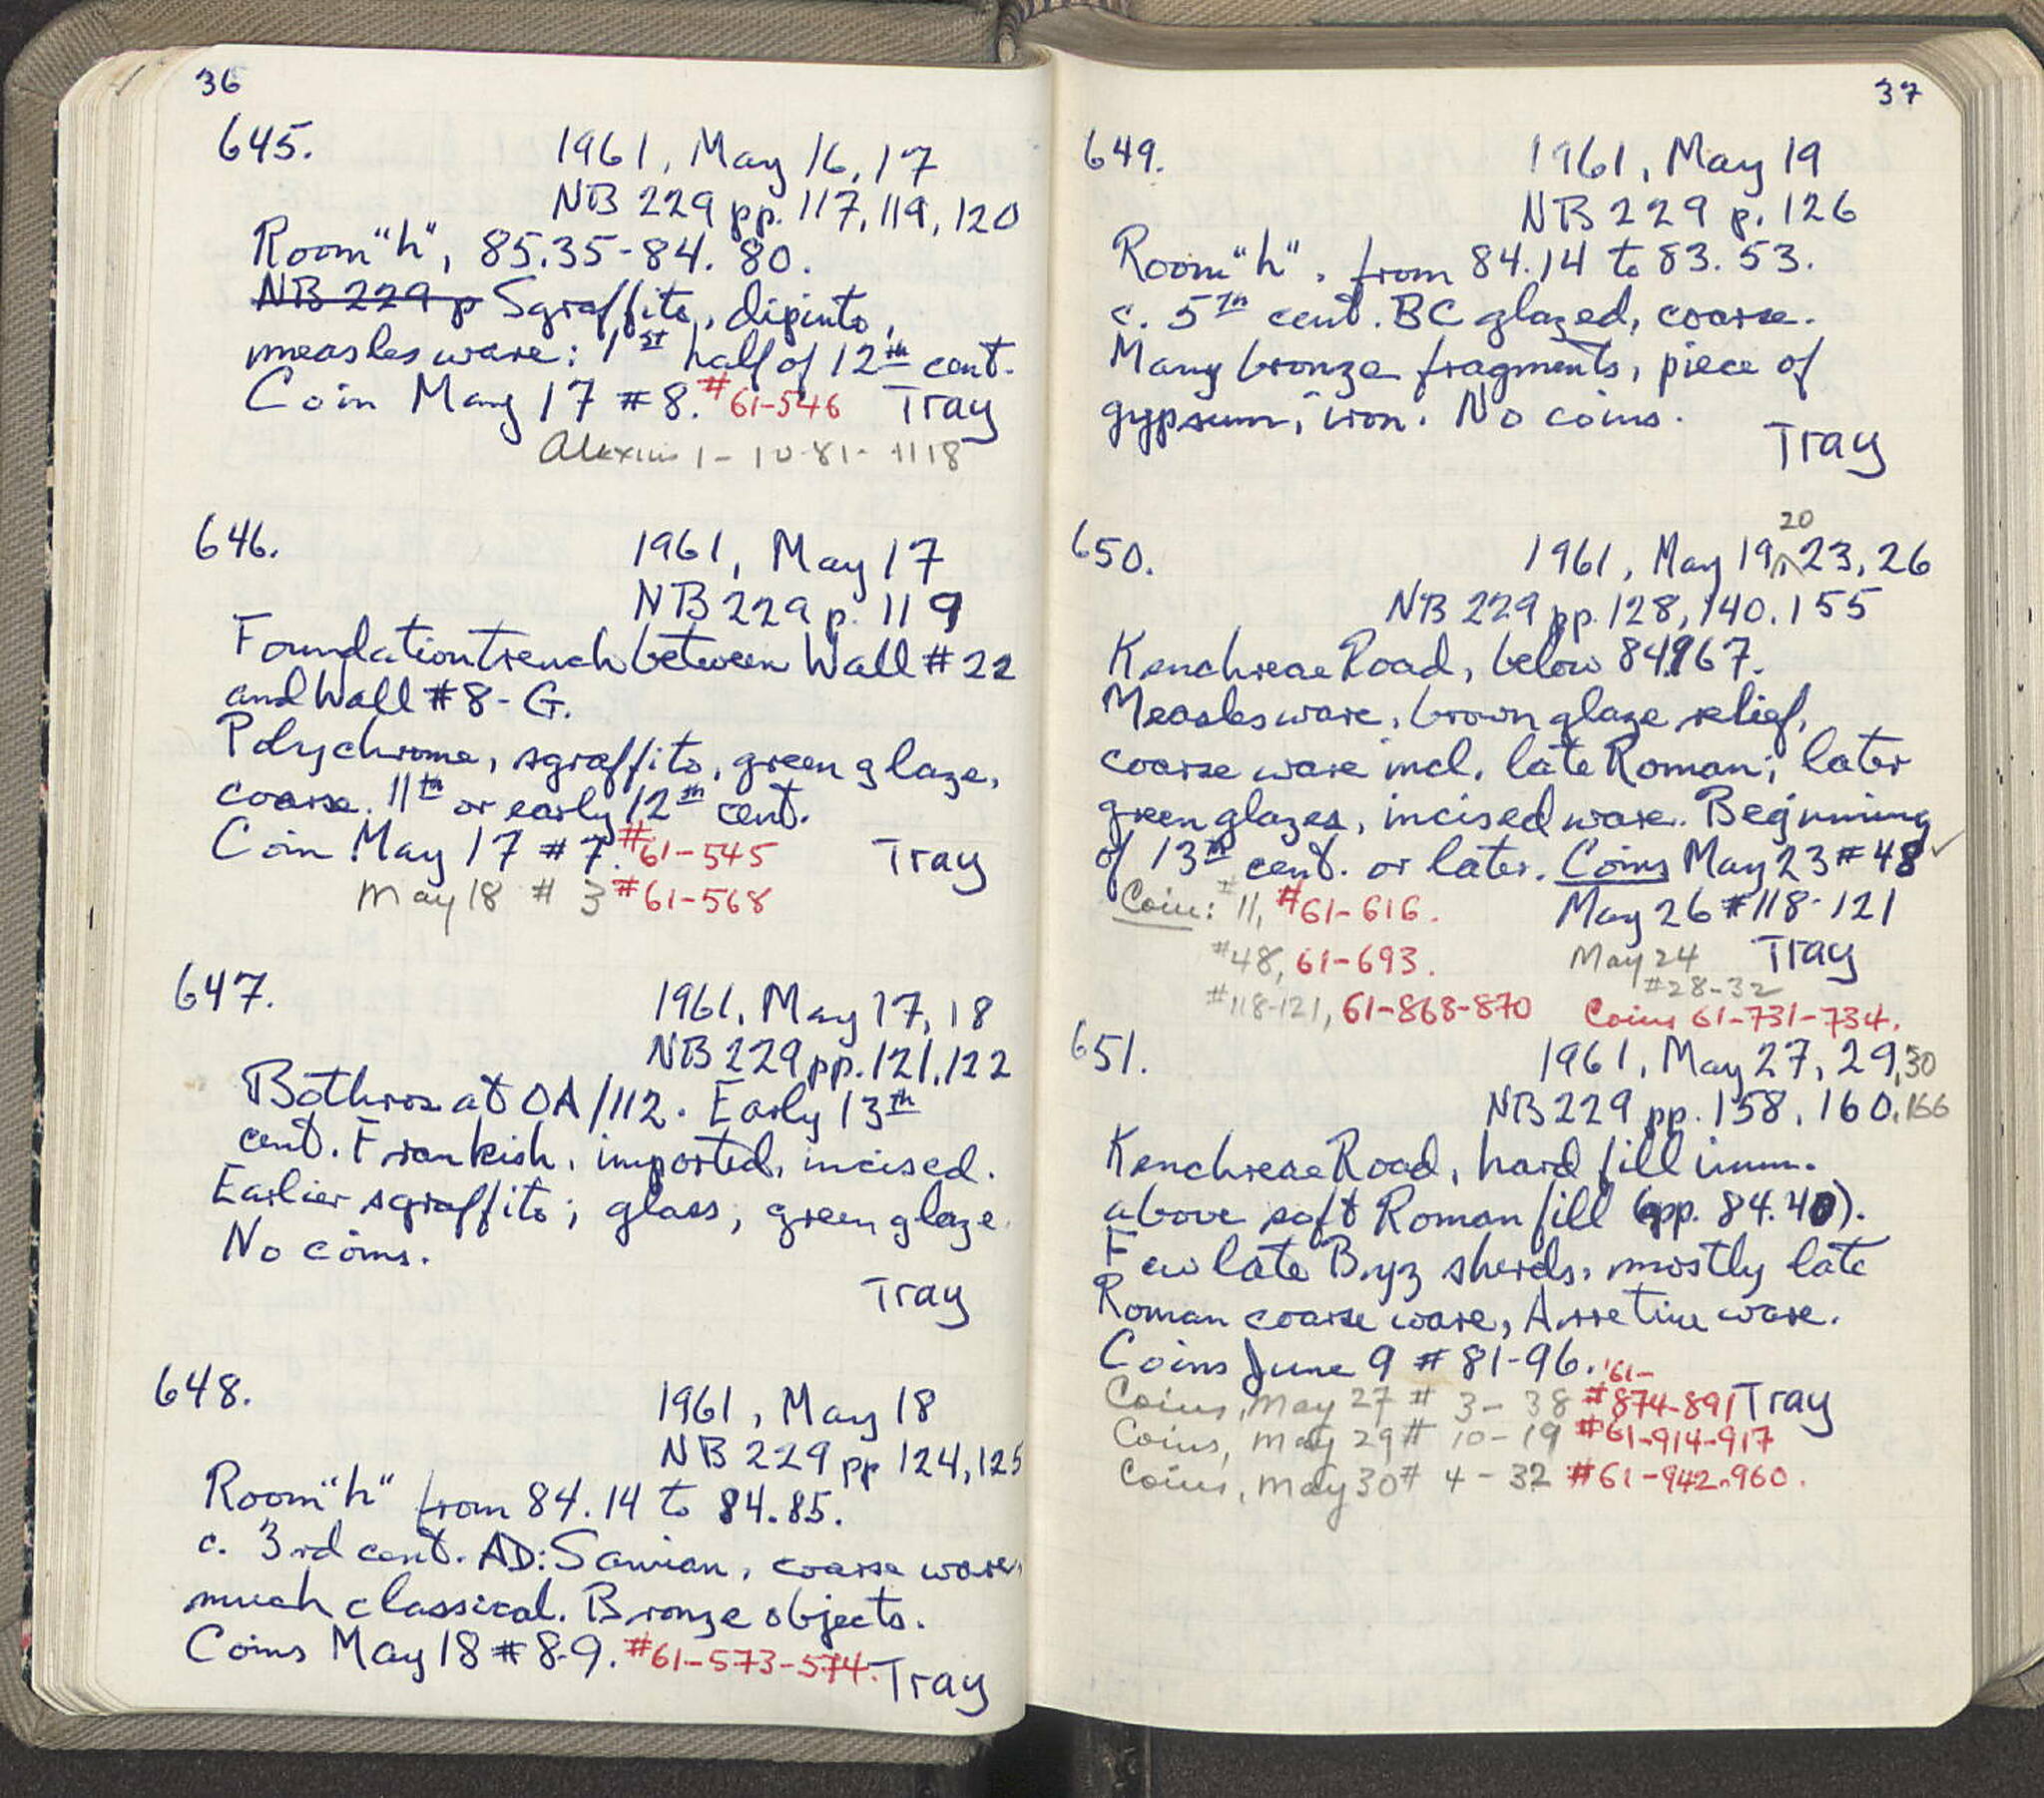 36
645.
1961, May 16, 17
NB 229 pp. 117, 119, 120
Room "h", 85.35-84.80.
NB 229 p Sgraffito, dipinto,
measles ware: 1st half of 12th cent.
Coin May 17 #8. #61-546 Tray
Alexius I - 1081-1118
646.
1961, May 17
NB 229 p. 119
Foundation trench between Wall #22
and Wall #8-G.
Polychrome, sgraffito, green glaze,
coarse. 11th or early 12th cent.
Coin May 17 #7. #61-545 Tray
May 18 # 3 #61-568
647.
1961, May 17, 18
NB 229 pp. 121, 122
Bothros at OA/112. Early 13th
cent. Frankish, imported, incised.
Earlier sgraffito; glass, green glaze.
No coins.
Tray
648.
1961, May 18
NB 229 pp 124, 125
Room "h" from 84.14 to 84.85.
c. 3rd cent. AD: Samian, coarse ware,
much classical. Bronze objects.
Coins May 18 #8-9. #61-573-574. Tray
37
649.
1961, May 19
NB 229 p. 126
Room "h", from 84.14 to 83.53.
c. 5th cent. BC glazed, coarse.
Many bronze fragments, piece of
gypsum, iron. No coins.
Tray
20
650.
1961, May 19, 23, 26
NB 229 pp. 128, 140. 155
Kenchreae Road, below 84.67.
Measles ware, brown glaze relief,
coarse ware incl. late Roman; later
green glazes, incised ware. Beginning
of 13th cent. or later. Coins May 23 #48 ✓
Coin: #11, #61-616. May 26 #118-121
#48, 61-693. May 24 Tray
#28-32
#118-121, 61-868-870 Coins 61-731-734.
651.
1961, May 27, 29, 30
NB 229 pp. 158, 160, 166
Kenchreae Road, hard fill imm.
above soft Roman fill (app. 84.40).
Few late Byz sherds, mostly late
Roman coarse ware, Arretine ware.
Coins June 9 #81-96. '61-
Coins, May 27 # 3-38 #874-891 Tray
Coins, May 29 # 10-19 #61-914-917
Coins, May 30 # 4-32 #61-942-960.